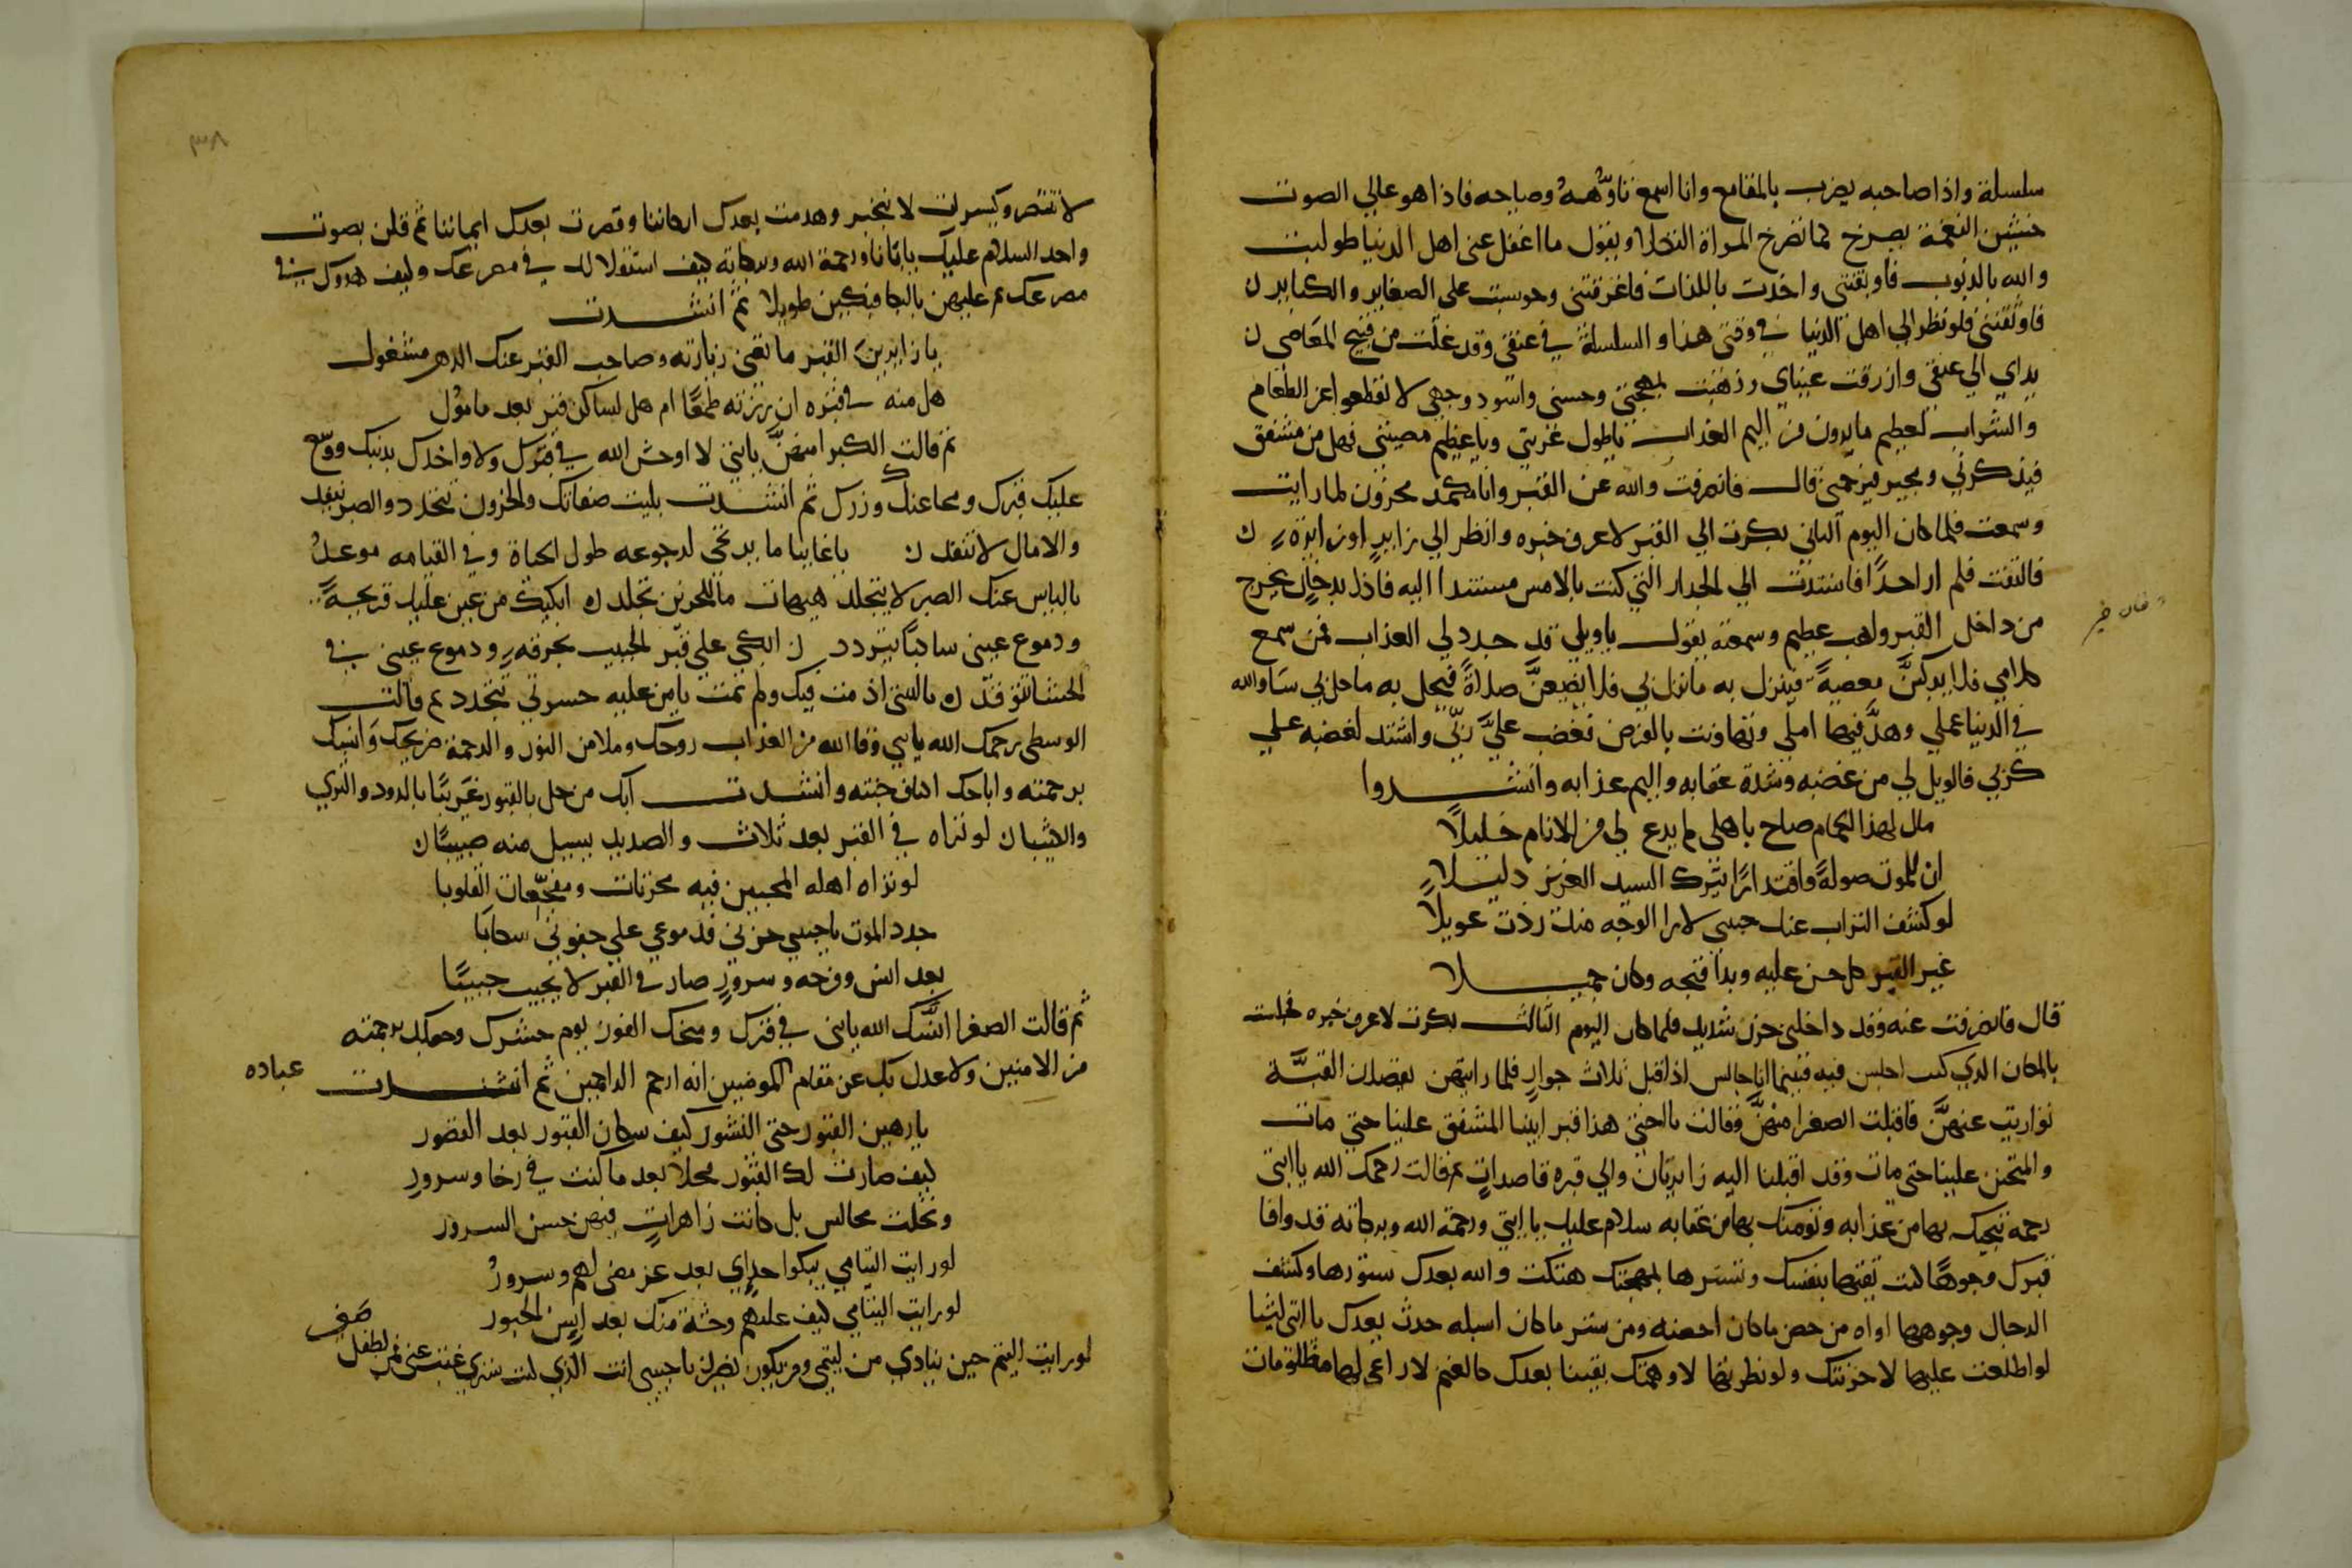 سلسلة واذا صاحبه يضرب بالمقامع وانا اسمع تاوُّههُ وصياحه فاذا هو عالي الصوت
النغمة يصرخ كما تصرخ المراة الثكلا ويقول ما اغفل عني اهل الدنيا طولبت
والله بالذنوب فاوبقتني واخذت باللذات فاغرقتني وحوسبت على الصغاير والكباير
فاوثقتني فلو نظر الي اهل الدنيا في وقتي هذا والسلسلة في عنقي وقد غلت من قبيح المعاصي
يداي الي عنقي وازرقت عيناي وذهبت بهجتي وحسني واسود وجهي لا نقطعوا عن الطعام
والشراب لعظيم ما يرون من اليم العذاب ياطول غربتي وياعظيم مصيبتي فهل من مشفق
فيذكرني ومجير فيرحمني قال فانصرفت والله عن القبر وانا كمد محزون لما رايت
وسمعت فلما كان اليوم الثاني بكرت الي القبر لاعرف خبره وانظر الي زايرٍ او زايرة
فالتفت فلم ار احدًا فاستندت الي الجدار التي كنت بالامس مستندا اليه فاذا بدخان يخرج
من داخل القبر ولهب عظيم وسمعته يقول ياويلي قد جدد لي العذاب فمن سمع
كلامي فلا يركبنَّ معصيةً فينزل به ما نزل بي فلا يضيعنَّ صلاةً فيحل به ما حل بي سَا والله
في الدنيا عملي وهدَّ فيها املي وتهاونت بالفرض فغضب عليَّ ربّي واشتد لغضبه علي
كربي فالويل لي من غضبه وشدة عقابه واليم عذابه وانشدوا
مال لهذا الحمام صاح باهلي لم يدع لي من الانام خليلاً
ان للموت صولةً واقتدارًا يترك السيد العزيز ذليلا
لو كشف التراب عنك حبيبي لارا الوجه منك زدت عويلاً
غير القبر كل حسن عليه وبدا قبحه وكان جميلا
قال فانصرفت عنه وقد داخلني حزن شديد فلما كان اليوم الثالث بكرت لاعرف خبره فجلست
بالمكان الذي كنت اجلس فيه فبينما انا جالس اذ اقبل ثلاث جوارٍ فلما رايتهن يقصدن القبَّة
تواريت عنهنَّ فاقبلت الصغرا منهنَّ وقالت يا اختي هذا قبر ابينا المشفق علينا حتي مات
والمتحنن علينا حتي مات وقد اقبلنا اليه زايرتان والي قبره قاصداتٍ ثم قالت رحمك الله يا ابتي
رحمة ننجيك بها من عذابه وتؤمنك بها من عقابه سلام عليك يا ابتي ورحمة الله وبركاته قد وافا
قبرك وجوهًا كنت تقيها بنفسك وتسترها بمهجتك هتكت والله بعدك ستورها وكشف
الرجال وجوهها اواه من حصن ما كان احصنه ومن ستر ما كان اسبله حدث بعدك يا ابتي اشيا
لو اطلعت عليها لاحزنتك ولو نظرتها لاوهمتك بقينا بعدك كالغنم لا راعي لها مظلومات
لا تنتصر وكسيرات لا تنجبر وهدمت بعدك اركاننا وقصرت بعدك ايماننا ثم قلن بصوت
واحد السلام عليك يا ابانا ورحمة الله وبركاته كيف استقلالك في مصرعك وكيف هدوك
مصرعك ثم عليهن بالبكا فبكين طويلا ثم انشدت
يا زايرين القبر ما تغني زيارته وصاحب القبر عنك الدهر مشغول
هل منه في قبره ان زرته طمعًا ام هل لساكن قبر بعد مامول
ثم قالت الكبرا منهنَّ يا ابتي لا اوحش الله في قبرك ولا واخذك بذنبك ووسّع
عليك قبرك ومحا عنك وزرك ثم انشدت بليت صفاتك والحزون تتجدد والصبر ينفد
والامال لا تنفد يا غايبا ما يرتجي لرجوعه طول الحياة وفي القيامه موعدُ
بالياس عنك الصبر لا يتجلد هيهات ما للحزين تجلد ابكيك من عين عليك قريحةً
ودموع عيني ساكبًا تتردد ابكي علي قبر الحبيب بحرقةٍ ودموع عيني في
الحشا تتوقد يا ليتني اذ مت فيك ولم تمت يا من عليه حسرتي تتجدد ثم قالت
الوسطى يرحمك الله يا ابي ووقا الله من العذاب روحك وملا من النور والرحمة ضريحك وانسك
برحمته واباحك اكناف جنته وانشدت آبك من حل بالقبور غريبًا بالدود والثري
لو تراه في القبر بعد ثلاث والصديد يسيل منه صبيبًا
لو تراه اهله المحبين فيه محزنات ومفجّعات القلوبا
جدد الموت يا حبيبي حزني فدموعي علي جفوني سكابا
بعد انس وفرحه وسرورٍ صار في القبر لا يجيب حبيبًا
ثم قالت الصغرا انسك الله يا ابتي في قبرك ومنحك الفوز يوم حشرك وجعلك برحمته
من الامنين ولا عدل بك عن مقام المومنين انه ارحم الراحمين ثم انشدت
عباده
يا رهين القبور حتي النشور كيف سكان القبور بعد القصور
كيف صارت لك القبور محلا بعد ما كنت في رخا وسرورِ
وتخلت مجالس بل كانت زاهراتٍ فيهن حسن السرور
لو رايت اليتامي يبكوا حداي بعد عز مضى لهم وسرورُ
لو رايت اليتامي كيف عليهم وحشة منك بعد انس الحبور
لو رايت اليتم حين ينادي من ليتمي ومن يكون نصير يا حبيبي انت الذي كنت ستري غبت عني فمن لطفل
صغير
٣٨